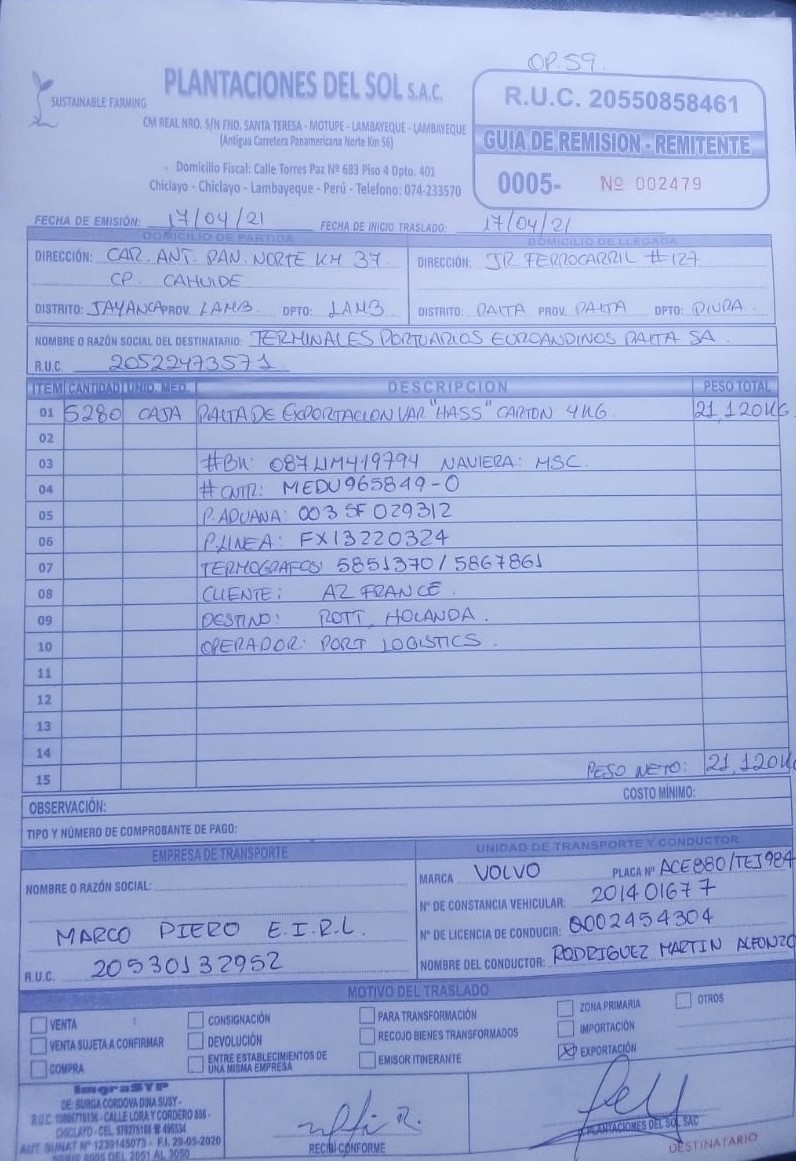 OP. 59.
PLANTACIONES DEL SOL S.A.C.
SUSTAINABLE FARMING
CM REAL NRO. S/N FND. SANTA TERESA - MOTUPE - LAMBAYEQUE - LAMBAYEQUE
(Antigua Carretera Panamericana Norte Km 56)
Domicilio Fiscal: Calle Torres Paz Nº 683 Piso 4 Dpto. 401
Chiclayo - Chiclayo - Lambayeque - Perú - Telefono: 074-233570
R.U.C. 20550858461
GUIA DE REMISIÓN - REMITENTE
0005- Nº 002479
FECHA DE EMISIÓN: 17/04/21 FECHA DE INICIO TRASLADO: 17/04/21
DOMICILIO DE PARTIDA DOMICILIO DE LLEGADA
DIRECCIÓN: CAR. ANT. PAN. NORTE KM 37 DIRECCIÓN: JR FERROCARRIL #127
CP. CAHUIDE
DISTRITO: JAYANCA PROV. LAMB. DPTO: LAMB DISTRITO: PAITA PROV. PAITA DPTO: PIURA.
NOMBRE O RAZÓN SOCIAL DEL DESTINATARIO: TERMINALES PORTUARIOS EUROANDINOS PAITA SA.
R.U.C. 20522473571
ITEM CANTIDAD UNID. MED. DESCRIPCION PESO TOTAL
01 5280 CAJA PALTA DE EXPORTACION VAR "HASS" CARTON 4KG. 21,120KG.
02
03 #BK: 087LIM419794 NAVIERA: MSC.
04 # CNTR: MEDU965849-0
05 P. ADUANA: 003SF029312
06 P. LINEA: FX13220324
07 TERMOGRAFOS: 5851370 / 5867861
08 CLIENTE: AZ FRANCE.
09 DESTINO: ROTT, HOLANDA.
10 OPERADOR: PORT LOGISTICS.
11
12
13
14
15 PESO NETO: 21,120KG
OBSERVACIÓN: COSTO MÍNIMO:
TIPO Y NÚMERO DE COMPROBANTE DE PAGO:
EMPRESA DE TRANSPORTE UNIDAD DE TRANSPORTE Y CONDUCTOR
NOMBRE O RAZÓN SOCIAL:
MARCO PIERO E.I.R.L.
R.U.C. 20530132952
MARCA VOLVO PLACA Nº ACE880/TEJ984
Nº DE CONSTANCIA VEHICULAR: 201401677
Nº DE LICENCIA DE CONDUCIR: Q002454304
NOMBRE DEL CONDUCTOR: RODRIGUEZ MARTIN ALFONZO
MOTIVO DEL TRASLADO
VENTA CONSIGNACIÓN PARA TRANSFORMACIÓN ZONA PRIMARIA OTROS
VENTA SUJETA A CONFIRMAR DEVOLUCIÓN RECOJO BIENES TRANSFORMADOS IMPORTACIÓN
COMPRA ENTRE ESTABLECIMIENTOS DE UNA MISMA EMPRESA EMISOR ITINERANTE EXPORTACIÓN
ImgraSYP
DE: BURGA CORDOVA DINA SUSY -
CALLE LORA Y CORDERO 806 -
AUT. SUNAT Nº 1239145073 - F.I. 29-05-2020
SERIE 0005 DEL 2051 AL 3050
RECIBI CONFORME
PLANTACIONES DEL SOL SAC
DESTINATARIO